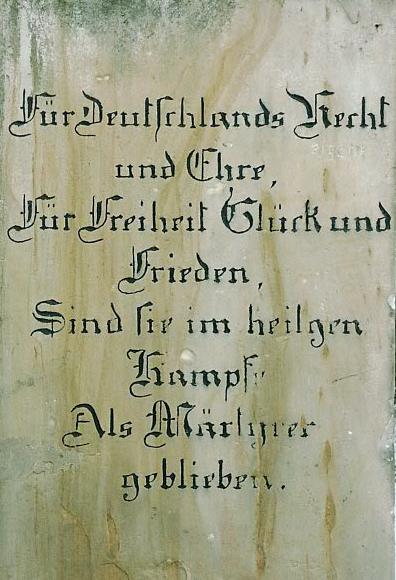 Für Deutschlands Recht
und Ehre,
Für Freiheit Glück und
Frieden,
Sind sie im heilgen
Kampfe
Als Märtyrer
geblieben.